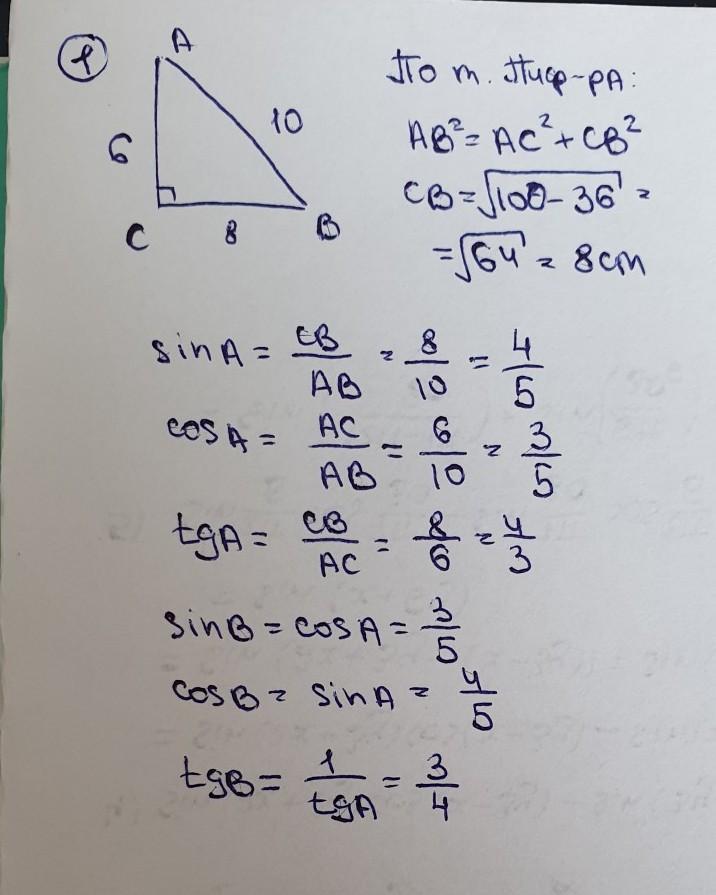 1
A
6
10
C
8
B
По т. Пиф-рА:
AB² = AC² + CB²
CB = √100 - 36 =
= √64 = 8 cm
sin A = CB/AB = 8/10 = 4/5
cos A = AC/AB = 6/10 = 3/5
tg A = CB/AC = 8/6 = 4/3
sin B = cos A = 3/5
cos B = sin A = 4/5
tg B = 1/tg A = 3/4